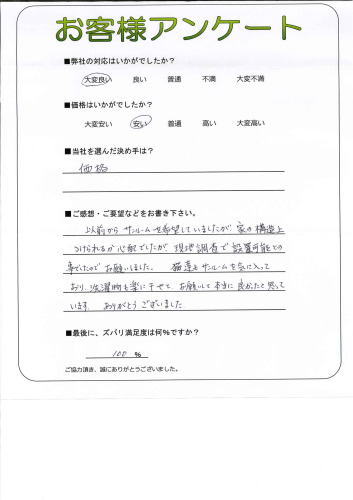 お客様アンケート
■弊社の対応はいかがでしたか？
大変良い 良い 普通 不満 大変不満
■価格はいかがでしたか？
大変安い 安い 普通 高い 大変高い
■当社を選んだ決め手は？
価格
■ご感想・ご要望などをお書き下さい。
以前からサンルームを希望していましたが、家の構造上
つけられるか心配でしたが、現地調査で設置可能との
事でしたのでお願いしました。猫達もサンルームを気に入って
おり、洗濯物も楽に干せて、お願いして本当に良かったと思って
います。ありがとうございました。
■最後に、ズバリ満足度は何％ですか？
100 %
ご協力頂き、誠にありがとうございました。